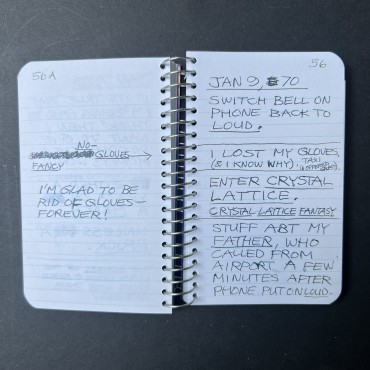 56A
NO-
GLOVES
FANCY
I'M GLAD TO BE
RID OF GLOVES—
FOREVER!
56
JAN 9, 70
SWITCH BELL ON
PHONE BACK TO
LOUD.
I LOST MY GLOVES,
(& I KNOW WHY). TAXI
ENTER CRYSTAL
LATTICE.
CRYSTAL LATTICE FANTASY
STUFF ABT MY
FATHER, WHO
CALLED FROM
AIRPORT A FEW
MINUTES AFTER
PHONE PUT ON LOUD.